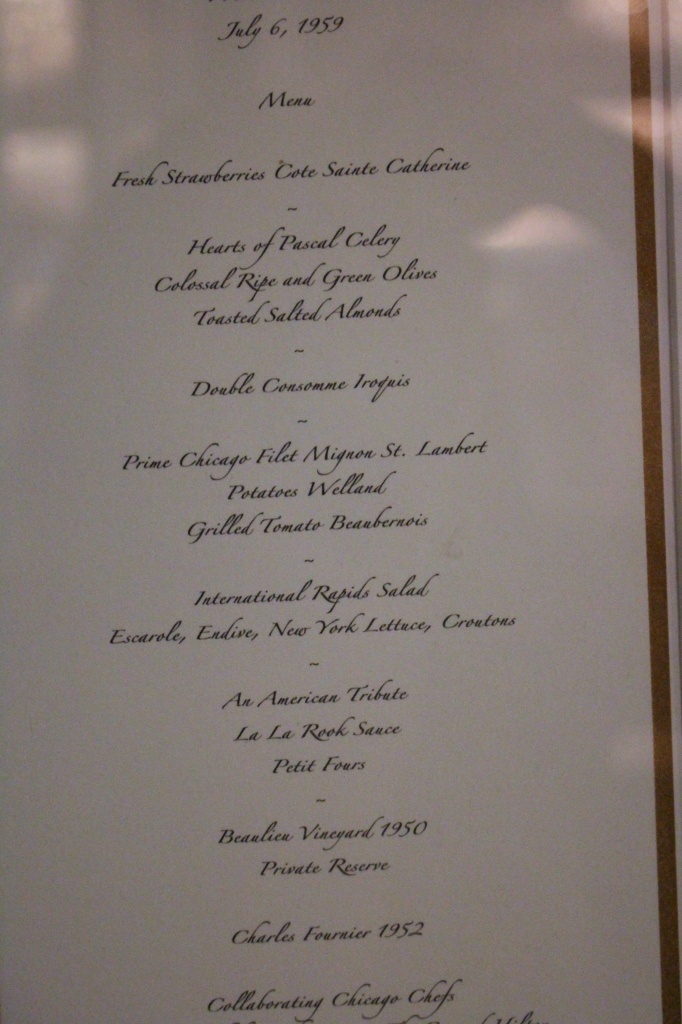 July 6, 1959
Menu
Fresh Strawberries Cote Sainte Catherine
~
Hearts of Pascal Celery
Colossal Ripe and Green Olives
Toasted Salted Almonds
~
Double Consomme Iroquis
~
Prime Chicago Filet Mignon St. Lambert
Potatoes Welland
Grilled Tomato Beaubernois
~
International Rapids Salad
Escarole, Endive, New York Lettuce, Croutons
~
An American Tribute
La La Rook Sauce
Petit Fours
~
Beaulieu Vineyard 1950
Private Reserve
Charles Fournier 1952
Collaborating Chicago Chefs